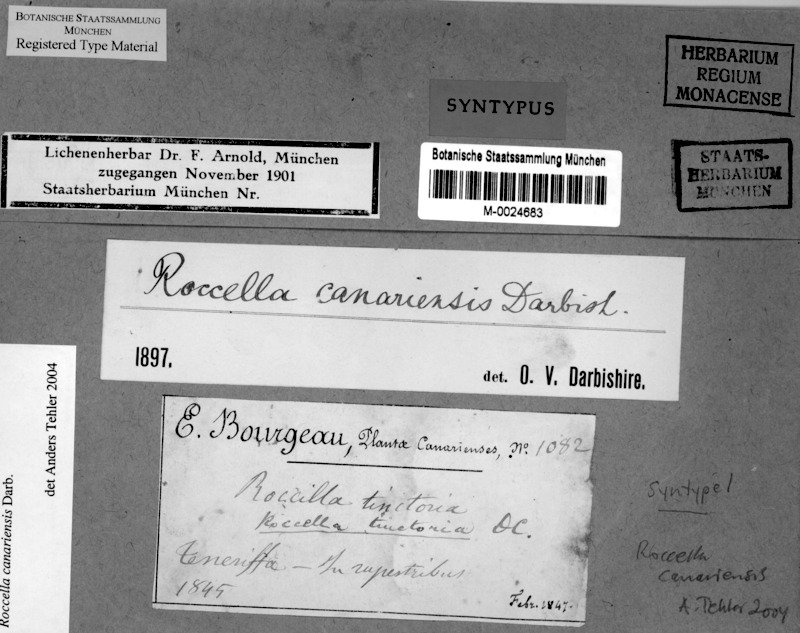 BOTANISCHE STAATSSAMMLUNG
MÜNCHEN
Registered Type Material
HERBARIUM
REGIUM
MONACENSE
SYNTYPUS
Lichenenherbar Dr. F. Arnold, München
zugegangen November 1901
Staatsherbarium München Nr.
Botanische Staatssammlung München
M-0024683
STAATS-
HERBARIUM
MÜNCHEN
Roccella canariensis Darbish.
1897.
det. O. V. Darbishire.
Roccella canariensis Darb.
det Anders Tehler 2004
E. Bourgeau, Plantæ Canarienses, No. 1082
Roccilla tinctoria
Roccella tinctoria DC.
Teneriffa – In rupestribus
1845
Febr. 1847.
Syntype!
Roccella
canariensis
A. Tehler 2004